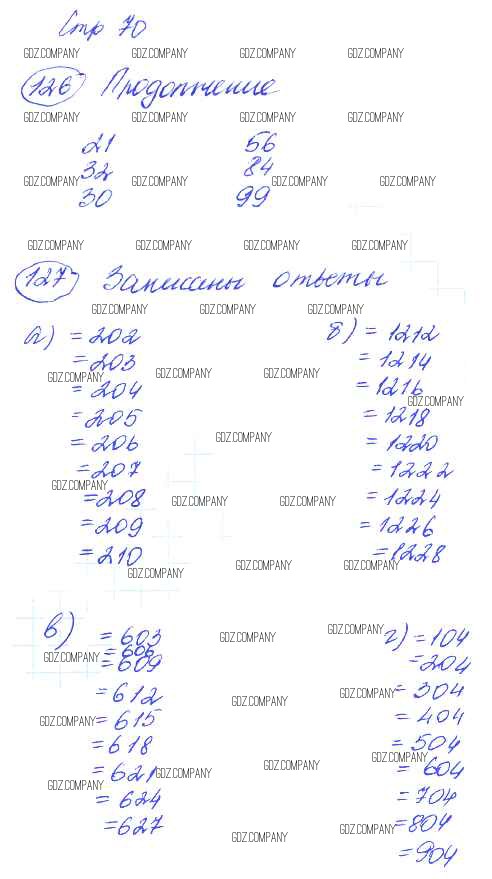 Стр 70
GDZ.COMPANY GDZ.COMPANY GDZ.COMPANY GDZ.COMPANY
126 Продолжение
GDZ.COMPANY GDZ.COMPANY GDZ.COMPANY GDZ.COMPANY
21 56
32 84
GDZ.COMPANY GDZ.COMPANY GDZ.COMPANY GDZ.COMPANY
30 99
GDZ.COMPANY GDZ.COMPANY GDZ.COMPANY GDZ.COMPANY
127 Записаны ответы
GDZ.COMPANY GDZ.COMPANY GDZ.COMPANY
а) = 202
= 203
GDZ.COMPANY GDZ.COMPANY GDZ.COMPANY
= 204
= 205
= 206
= 207
GDZ.COMPANY GDZ.COMPANY GDZ.COMPANY
= 208
= 209
= 210
GDZ.COMPANY
б) = 1212
= 1214
= 1216
GDZ.COMPANY
= 1218
GDZ.COMPANY
= 1220
= 1222
= 1224
= 1226
= 1228
GDZ.COMPANY GDZ.COMPANY
в) = 603
= 606
GDZ.COMPANY GDZ.COMPANY
= 609
= 612
GDZ.COMPANY = 615
= 618
= 621 GDZ.COMPANY
GDZ.COMPANY
= 624
= 627
GDZ.COMPANY г) = 104
= 204
GDZ.COMPANY GDZ.COMPANY = 304
= 404
= 504
GDZ.COMPANY GDZ.COMPANY
= 604
= 704
GDZ.COMPANY GDZ.COMPANY = 804
= 904